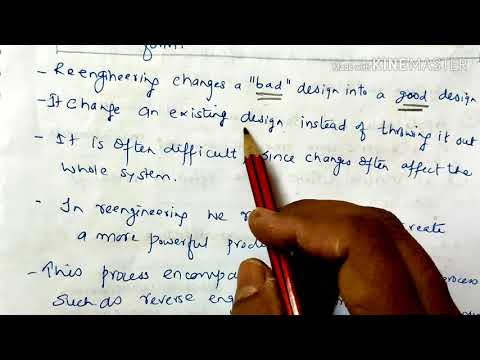 Made with KINEMASTER
form.
- Reengineering changes a "bad" design into a good design
- It change an existing design instead of throwing it out
- It is often difficult, since changes often affect the
whole system.
- In reengineering we create
a more powerful
- This process process
such as reverse